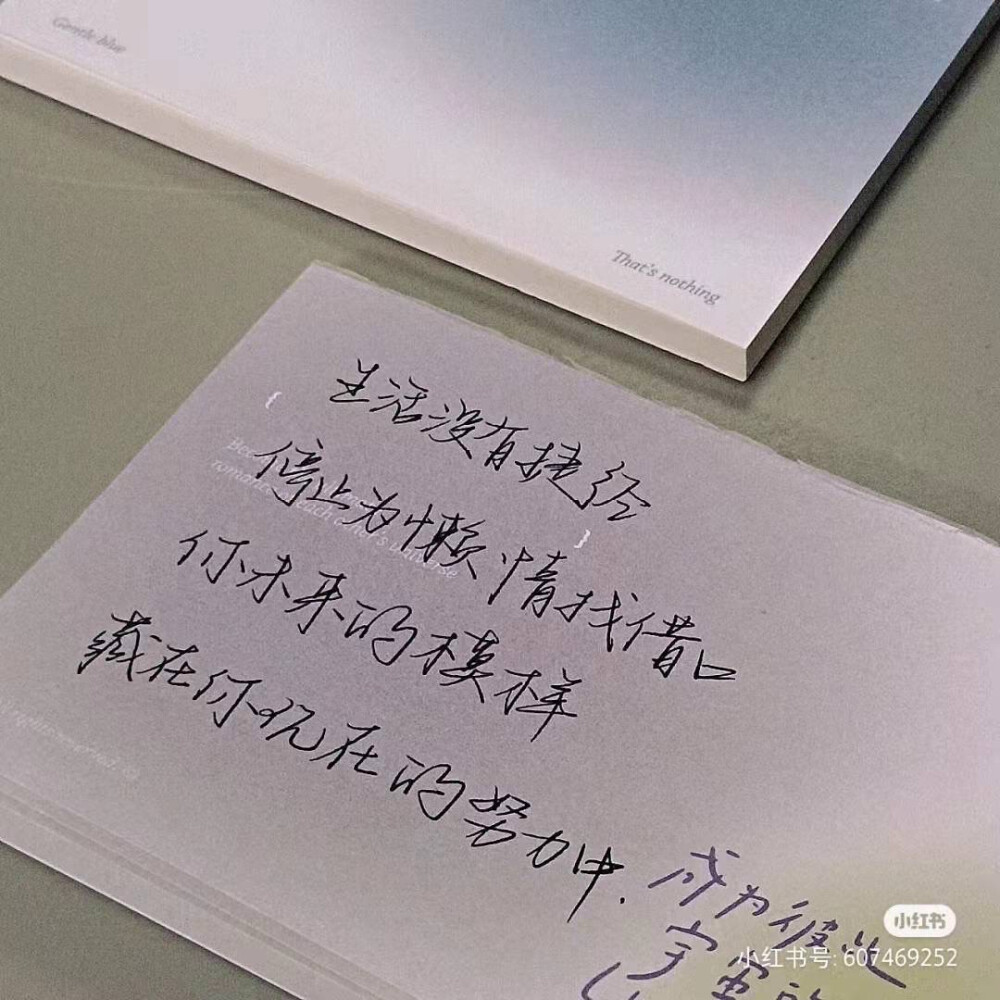 Gentle blue
That's nothing
生活没有捷径
停止为懒惰找借口
你未来的模样
藏在你现在的努力中.
each other's universe
成为彼此
宇宙的
小红书
小红书号: 607469252